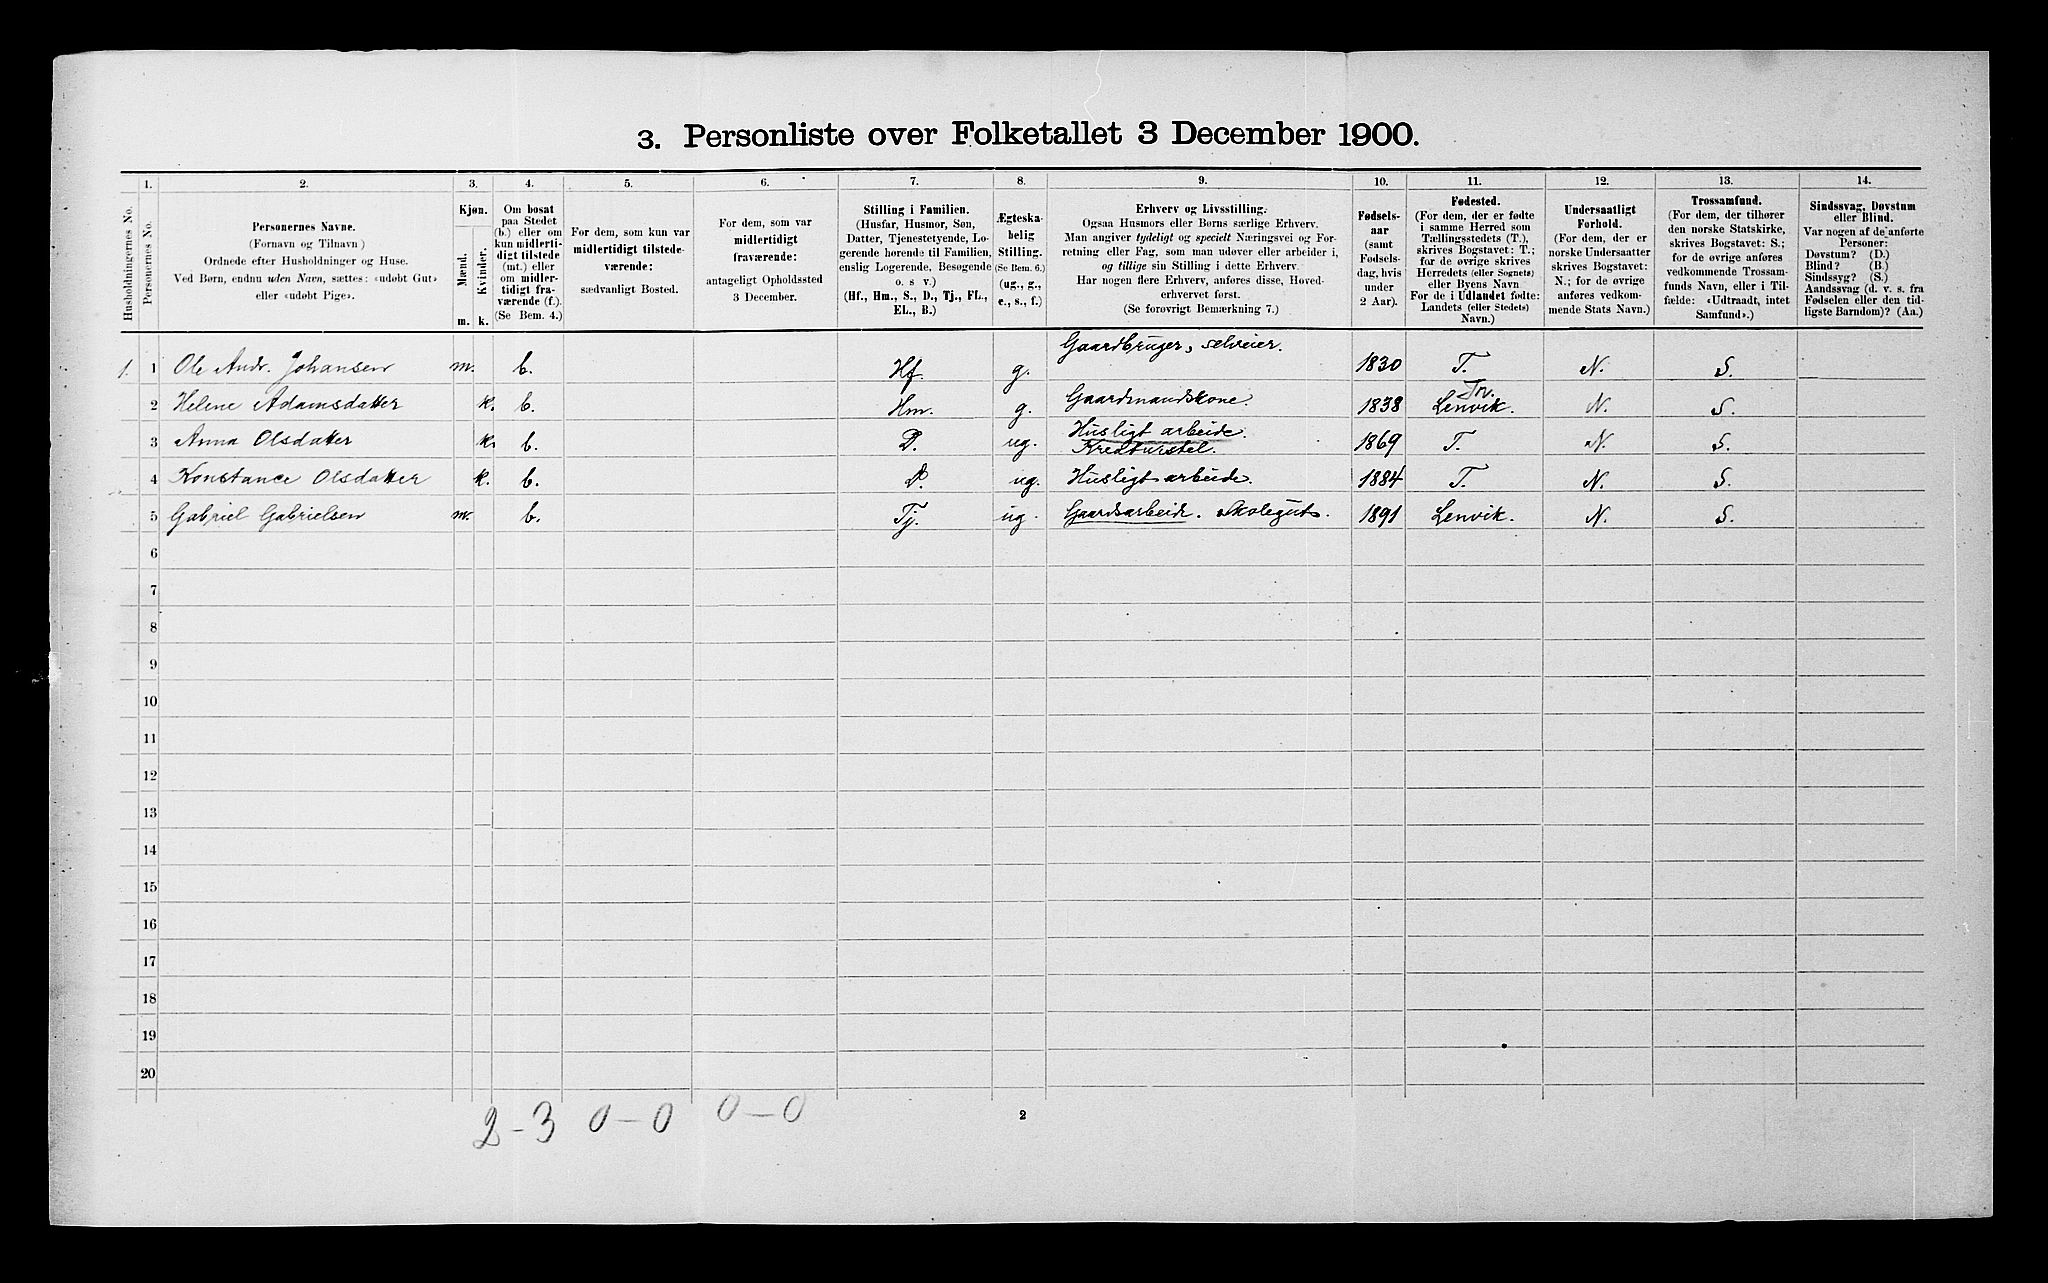 3. Personliste over Folketallet 3 December 1900.
Husholdningernes No.
1.
Personernes No.
2.
Personernes Navne.
(Fornavn og Tilnavn)
Ordnede efter Husholdninger og Huse.
Ved Børn, endnu uden Navn, sættes: «udøbt Gut»
eller «udøbt Pige».
3.
Kjøn.
Mænd.
Kvinder.
m. k.
4.
Om bosat
paa Stedet
(b.) eller om
kun midlerti-
digt tilstede
(mt.) eller
om midler-
tidigt fra-
værende (f.).
(Se Bem. 4.)
5.
For dem, som kun var
midlertidigt tilstede-
værende:
sædvanligt Bosted.
6.
For dem, som var
midlertidigt
fraværende:
antageligt Opholdssted
3 December.
7.
Stilling i Familien.
(Husfar, Husmor, Søn,
Datter, Tjenestetyende, Lo-
gerende hørende til Familien,
enslig Logerende, Besøgende
o. s v.)
(Hf., Hm., S., D., Tj., FL.,
EL., B.)
8.
Ægteska-
belig
Stilling.
(Se Bem. 6.)
(ug., g.,
e., s., f.)
9.
Erhverv og Livsstilling.
Ogsaa Husmors eller Børns særlige Erhverv.
Man angiver tydeligt og specielt Næringsvei og For-
retning eller Fag, som man udøver eller arbeider i,
og tillige sin Stilling i dette Erhverv.
Har nogen flere Erhverv, anføres disse, Hoved-
erhvervet først.
(Se forøvrigt Bemærkning 7.)
10.
Fødsels-
aar
(samt
Fødsels-
dag, hvis
under
2 Aar).
11.
Fødested.
(For dem, der er fødte
i samme Herred som
Tællingsstedets (T.),
skrives Bogstavet: T.;
for de øvrige skrives
Herredets (eller Sognets)
eller Byens Navn
For de i Udlandet fødte:
Landets (eller Stedets)
Navn.)
12.
Undersaatligt
Forhold.
(For dem, der er
norske Undersaatter
skrives Bogstavet:
N.; for de øvrige
anføres vedkom-
mende Stats Navn.)
13.
Trossamfund.
(For dem, der tilhører
den norske Statskirke,
skrives Bogstavet: S.;
for de øvrige anføres
vedkommende Trossam-
funds Navn, eller i Til-
fælde: «Udtraadt, intet
Samfund».)
14.
Sindssvag, Døvstum
eller Blind.
Var nogen af de anførte
Personer:
Døvstum? (D.)
Blind? (B.)
Sindssyg? (S.)
Aandssvag (d. v. s. fra
Fødselen eller den tid-
ligste Barndom)? (Aa.)
1. 1 Ole Andr. Johansen m. b. Hf. g. Gaardbruger, selveier. 1830 T. N. S.
2 Helene Adamsdatter k. b. Hm. g. Gaardmandskone. 1838 Lenvik. Tr. N. S.
3 Anna Olsdatter k. b. D. ug. Husligt arbeide. Kreaturstel. 1869 T. N. S.
4 Konstance Olsdatter k. b. D. ug. Husligt arbeide. 1884 T. N. S.
5 Gabriel Gabrielsen m. b. Tj. ug. Gaardsarbeide. Skolegut. 1891 Lenvik. N. S.
6
7
8
9
10
11
12
13
14
15
16
17
18
19
20
2-3 0-0 0-0
2